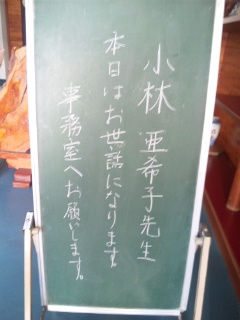 小林 亜希子先生
本日はお世話になります。
事務室へお願いします。